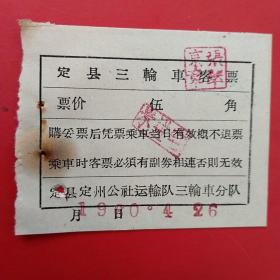 定县三輪車客票
票价 伍 角
購妥票后凭票乘車当日有效概不退票
乘车时客票必須有副券相連否則无效
定县定州公社运輸队三輪車分队
月 日
1980·4 26